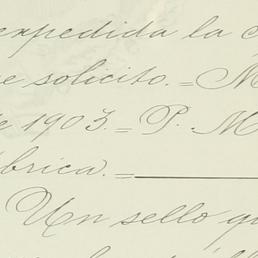 expedida la c
e solicito.= M
e 1903.= P. M
brica.=
Un sello qu